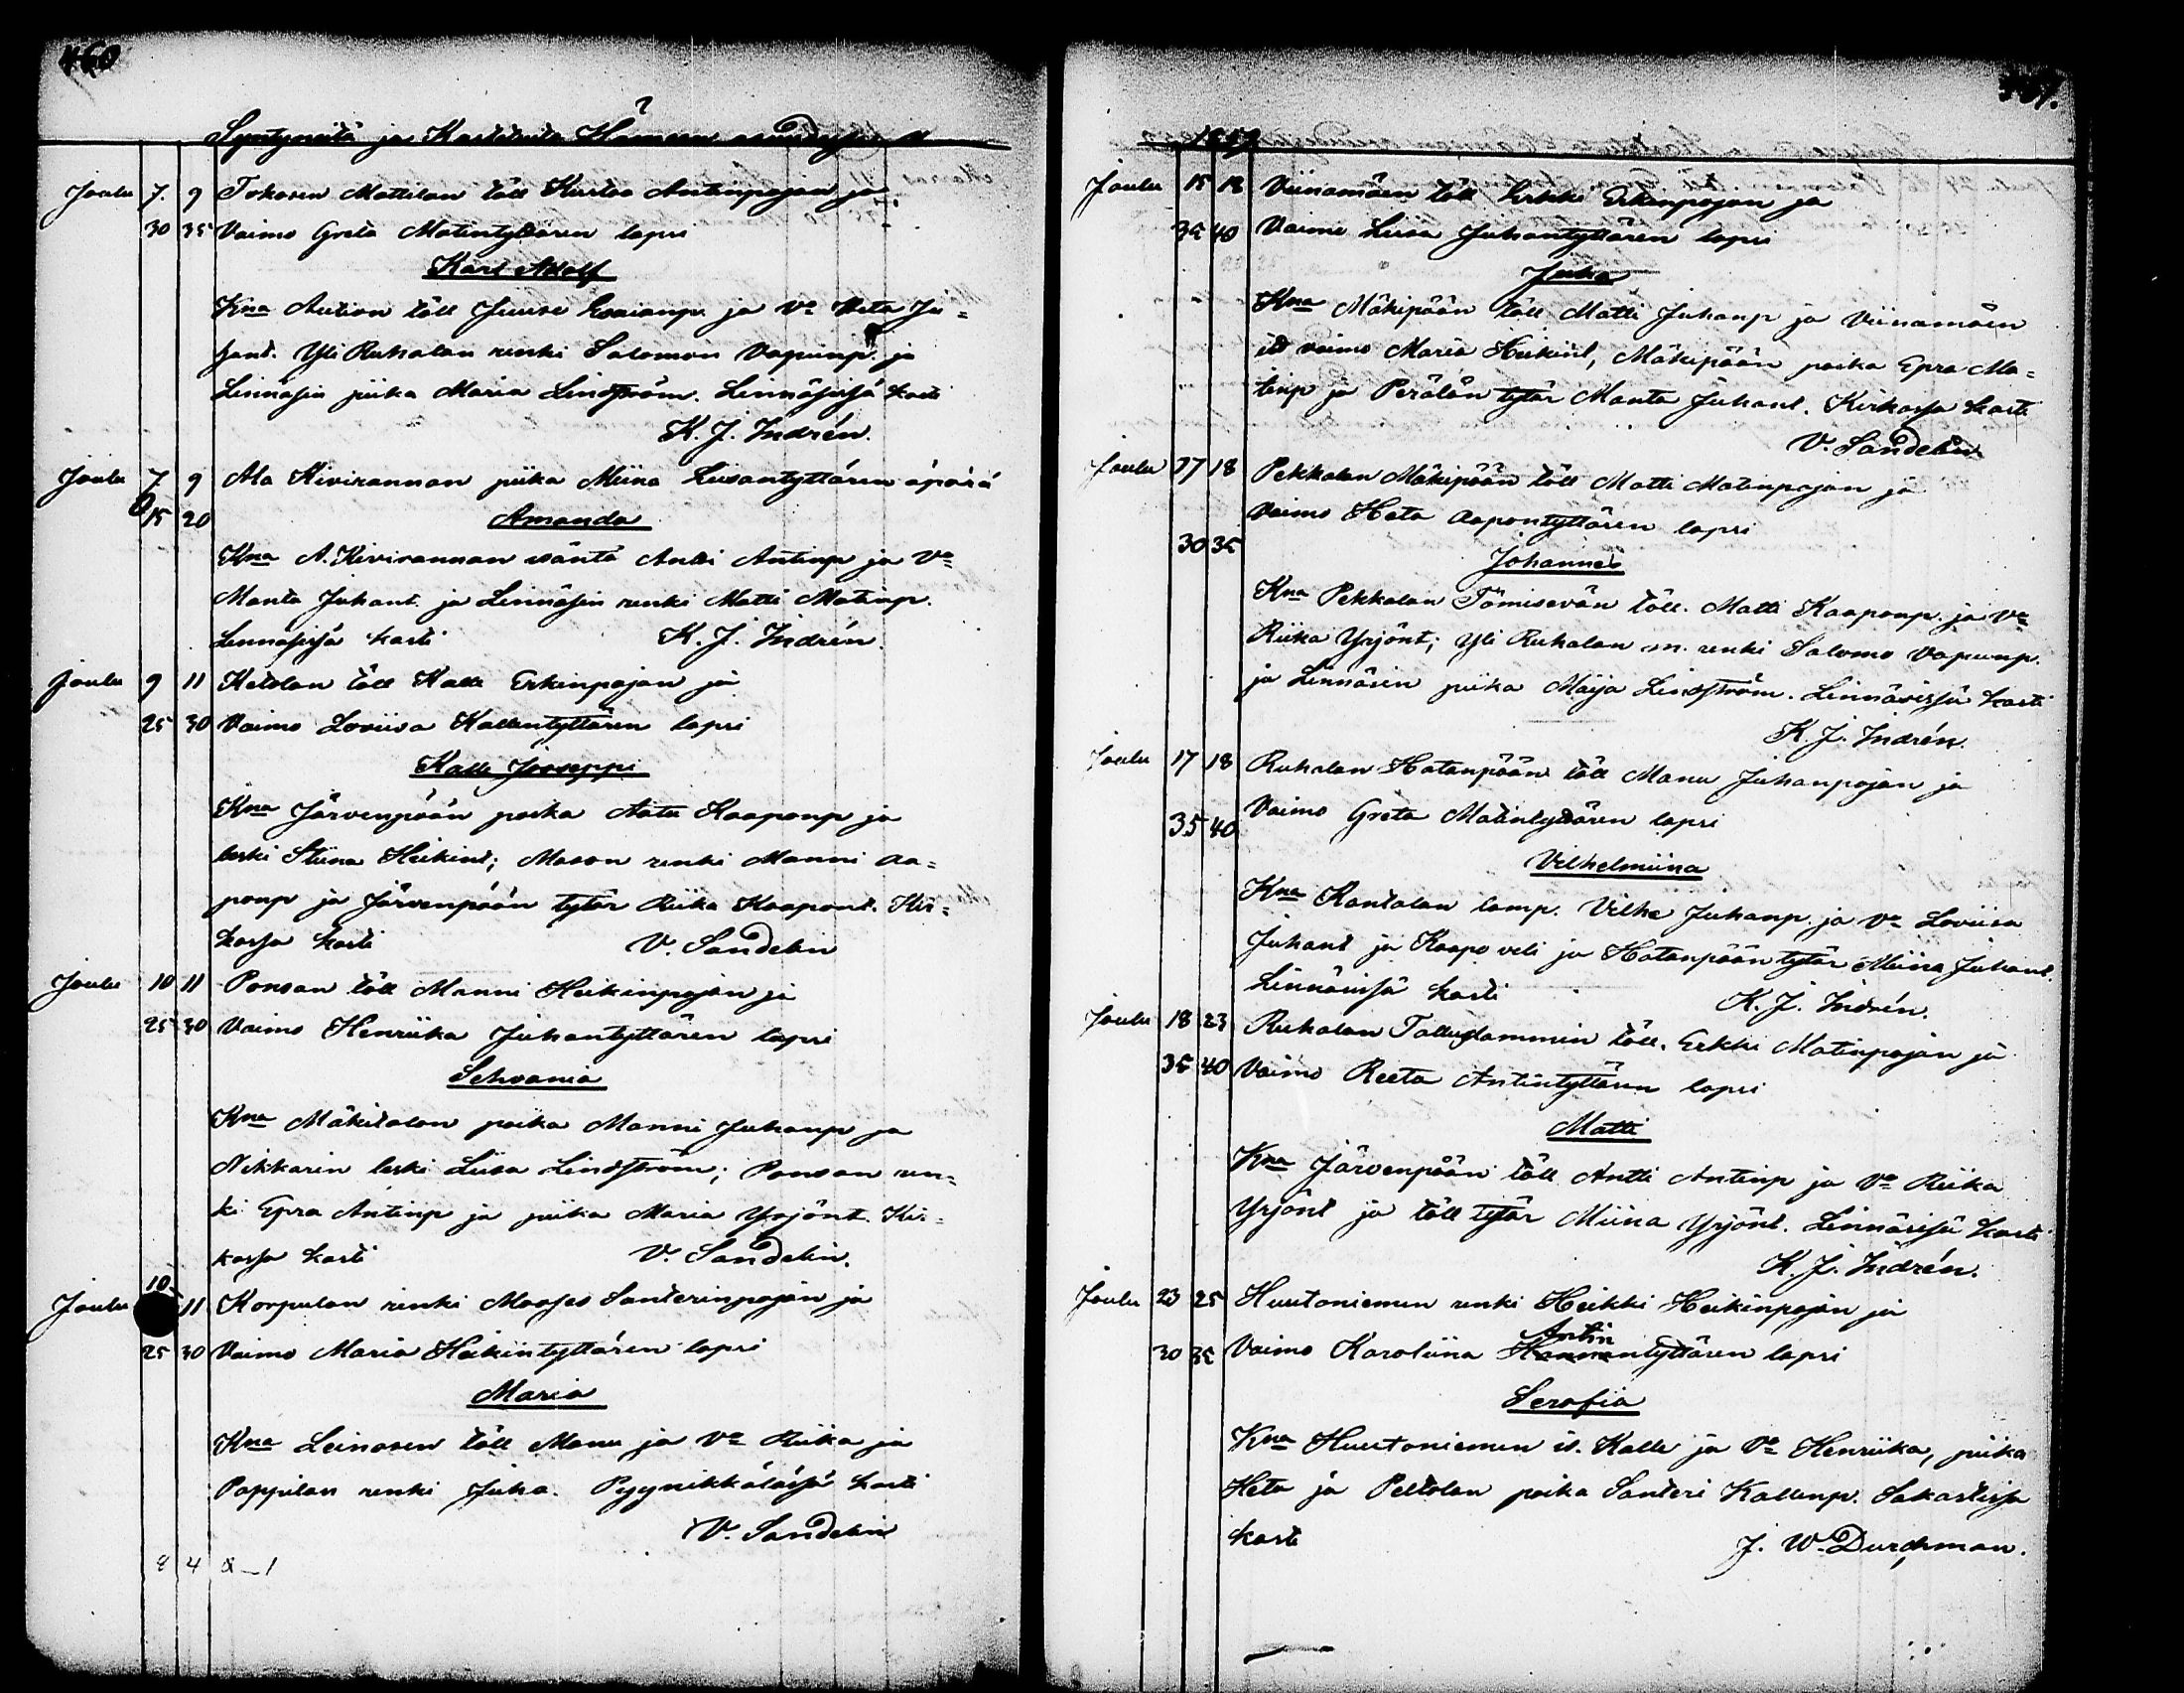 460
Syntyneitä ja Kastetuita Hämeen
Joulu 7. 9 Tokosen Mattilan töll Kustaa Antinpojan ja
30 35 Vaimo Greta Matintyttären lapsi
Karl Adolf
Kna Aution töll Juuse Esaianp. ja Va Heta Ju=
hant. Yli Ruhalan renki Salomon Vapunp. ja
Linnäsin piika Maria Lindström. Linnäsissä kasti
K. J. Indrén.
Joulu 7 9 Ala Kivirannan piika Miina Liisantyttären äpärä
15 20 Amanda
Kna A. Kivirannan isäntä Antti Antinp ja Va
Manta Juhant. ja Linnäsin renki Matti Matinp.
Linnäsissä kasti K. J. Indrén.
Joulu 9 11 Ketolan töll Kalle Erkinpojan ja
25 30 Vaimo Loviisa Kallentyttären lapsi
Kalle Jooseppi
Kna Järvenpään poika Aatu Kaaponp ja
leski Stiina Heikint; Mason renki Manni Aa=
ponp ja Järvenpään tytär Riika Kaapont. Kir=
kossa kasti V. Sandelin
Joulu 10 11 Ponsan töll Manni Heikinpojan ja
25 30 Vaimo Henriika Juhantyttären lapsi
Sehvania
Kna Mäkitalon poika Manni Juhanp ja
Nikkarin leski Liisa Lindström; Ponsan ren=
ki Epra Antinp ja piika Maria Yrjönt. Kir=
kossa kasti V. Sandelin.
10
Joulu 11 Korpulan renki Mooses Santerinpojan ja
25 30 Vaimo Maria Heikintyttären lapsi
Maria
Kna Leinosen töll Manu ja Va Riika ja
Pappilan renki Juha. Pyynikkälässä kasti
V. Sandelin
8 4 2_1
Joulu 15 18 Viinamäen töll Erkki Erkinpojan ja
35 40 Vaimo Liisa Juhantyttären lapsi
Juha
Kna Mäkipään töll Matti Juhanp ja Viinamäen
its vaimo Maria Heikint, Mäkipään poika Epra Ma=
tinp ja Perälän tytär Manta Juhant. Kirkossa kasti
V. Sandelin
Joulu 17 18 Pekkalan Mäkipään töll Matti Matinpojan ja
Vaimo Heta Aapontyttären lapsi
30 35 Johannes
Kna Pekkalan Tömisevän töll. Matti Kaaponp. ja Va
Riika Yrjönt; Yli Ruhalan m. renki Salomo Vapunp.
ja Linnäsin piika Maija Lindström. Linnäsissä kasti
K. J. Indrén.
Joulu 17 18 Ruhalan Hatanpään töll Manu Juhanpojan ja
35 40 Vaimo Greta Matintyttären lapsi
Vilhelmiina
Kna Rantalan lamp. Vilhe Juhanp. ja Va Loviisa
Juhant ja Kaapo veli ja Hatanpään tytär Miina Juhant.
Linnäsissä kasti K. J. Indrén.
Joulu 18 23 Ruhalan Tallusdammin töll. Erkki Matinpojan ja
35 40 Vaimo Reeta Antintyttären lapsi
Matti
Kna Järvenpään töll Antti Antinp ja Va Riika
Yrjönt ja töll tytär Miina Yrjönt. Linnäsissä kasti
K. J. Indrén.
Joulu 23 25 Huutoniemen renki Heikki Heikinpojan ja
Antin
30 35 Vaimo Karoliina Hannentyttären lapsi
Serafia
Kna Huutoniemen is. Kalle ja Va Henriika, piika
Heta ja Peltolan poika Santeri Kallenp. Sakastissa
kasti J. W. Durchman.